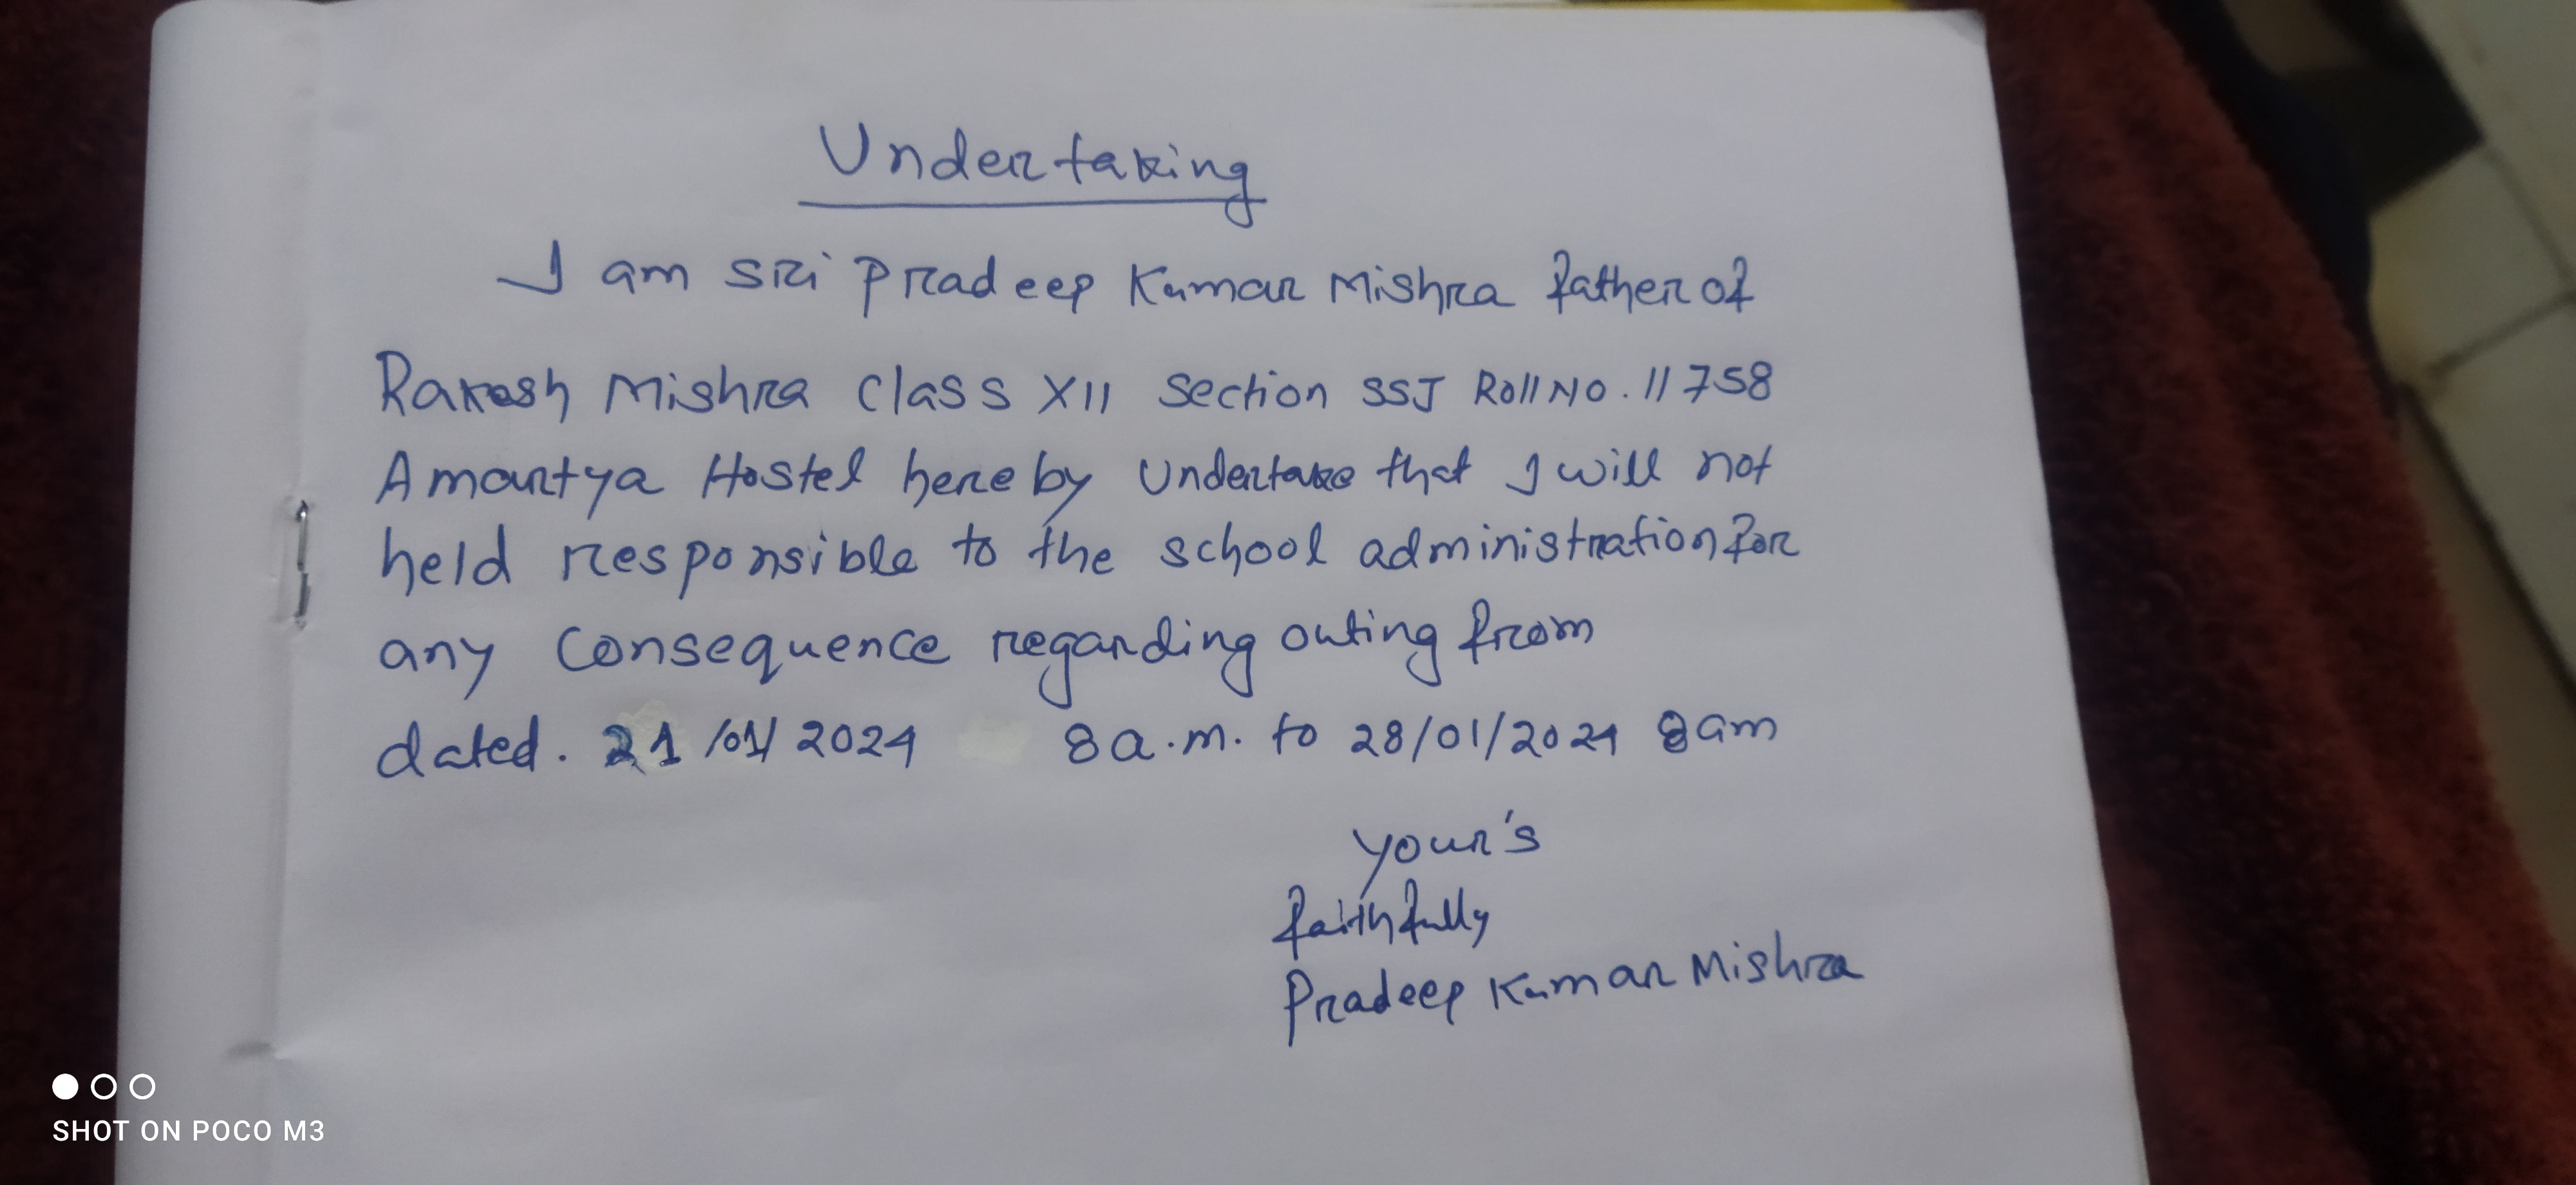 Undertaking
I am sri Pradeep Kumar Mishra father of
Rakesh Mishra class XII section SSJ Roll No. 11758
Amartya Hostel hereby Undertake that I will not
held responsible to the school administration for
any consequence regarding outing from
dated. 21/01/2024 8 a.m. to 28/01/2024 8am
your's
faithfully
Pradeep Kumar Mishra
SHOT ON POCO M3